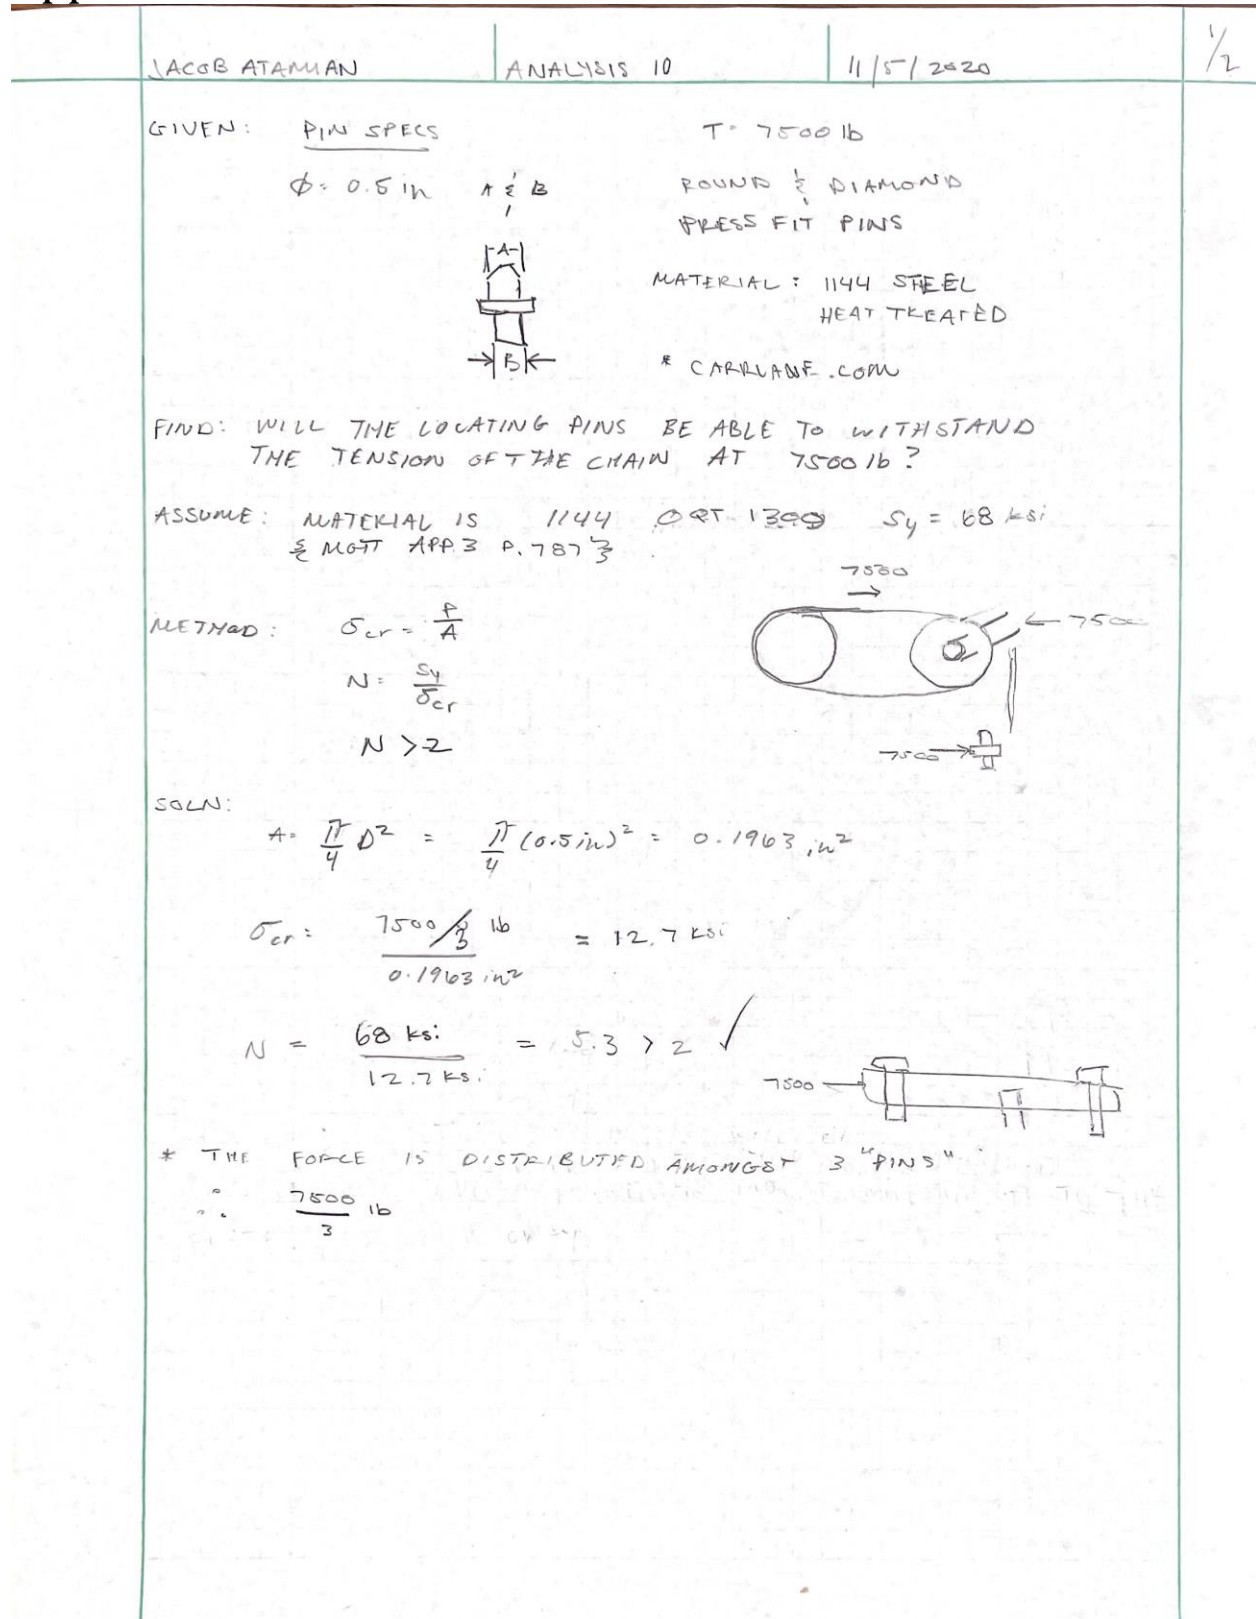 1/2
JACOB ATAMIAN ANALYSIS 10 11/5/2020
GIVEN: PIN SPECS T= 7500 lb
ϕ= 0.5 in A & B ROUND & DIAMOND
PRESS FIT PINS
A
MATERIAL: 1144 STEEL
HEAT TREATED
B
* CARRLANE.COM
FIND: WILL THE LOCATING PINS BE ABLE TO WITHSTAND
THE TENSION OF THE CHAIN AT 7500 lb?
ASSUME: MATERIAL IS 1144 OQT 1300 Sy = 68 ksi
{ MOTT APP. 3 P. 787 }
7500
METHOD: σcr = P/A
7500
N = Sy/σcr
N > 2
7500
SOLN:
A= π/4 D² = π/4 (0.5 in)² = 0.1963 in²
σcr = 7500/3 lb / 0.1963 in² = 12.7 ksi
N = 68 ksi / 12.7 ksi = 5.3 > 2 ✓
7500
* THE FORCE IS DISTRIBUTED AMONGST 3 "PINS"
∴ 7500/3 lb